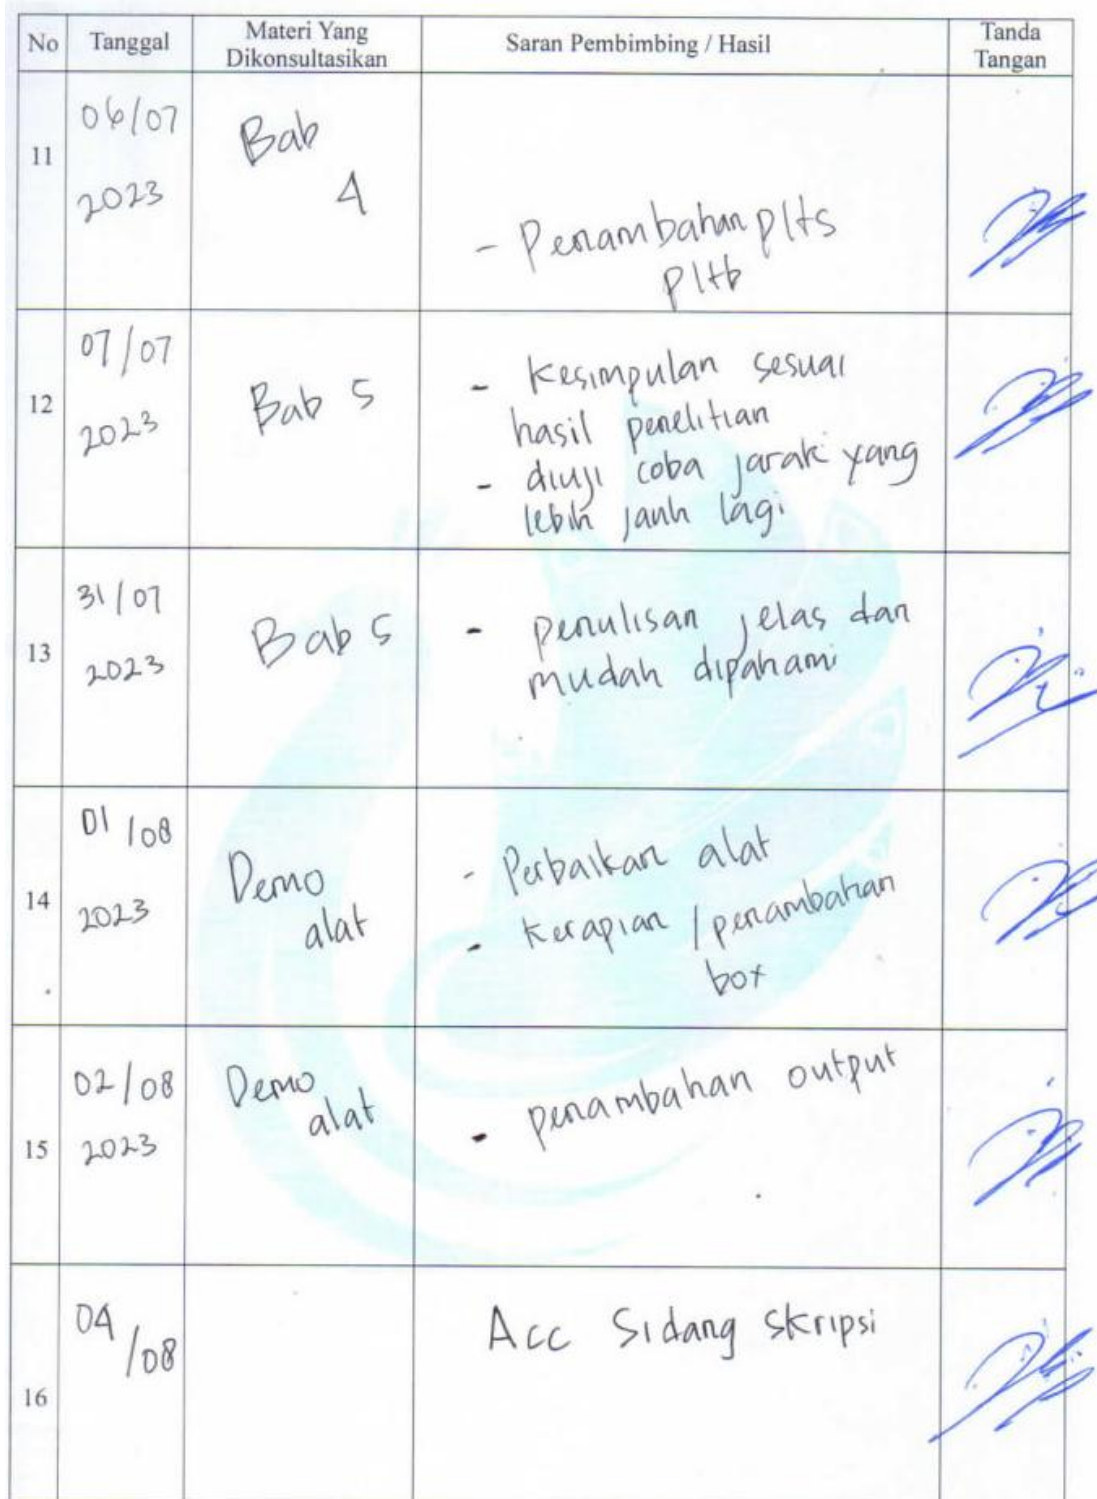 No Tanggal Materi Yang Dikonsultasikan Saran Pembimbing / Hasil Tanda Tangan
11
06/07
2023
Bab
4
- Penambahan plts
pltb
12
07/07
2023
Bab 5
- Kesimpulan sesuai
hasil penelitian
- diuji coba jarak yang
lebih jauh lagi
13
31/07
2023
Bab 5
- penulisan jelas dan
mudah dipahami
14
01/08
2023
Demo
alat
- Perbaikan alat
- kerapian / penambahan
box
15
02/08
2023
Demo
alat
- penambahan output
16
04/08
Acc Sidang Skripsi